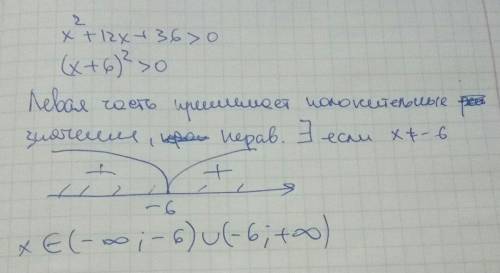 x² + 12x + 36 > 0
(x+6)² > 0
Левая часть принимает положительные
значения, нерав. ∃ если x ≠ -6
+ +
-6
x ∈ (-∞; -6) ∪ (-6; +∞)